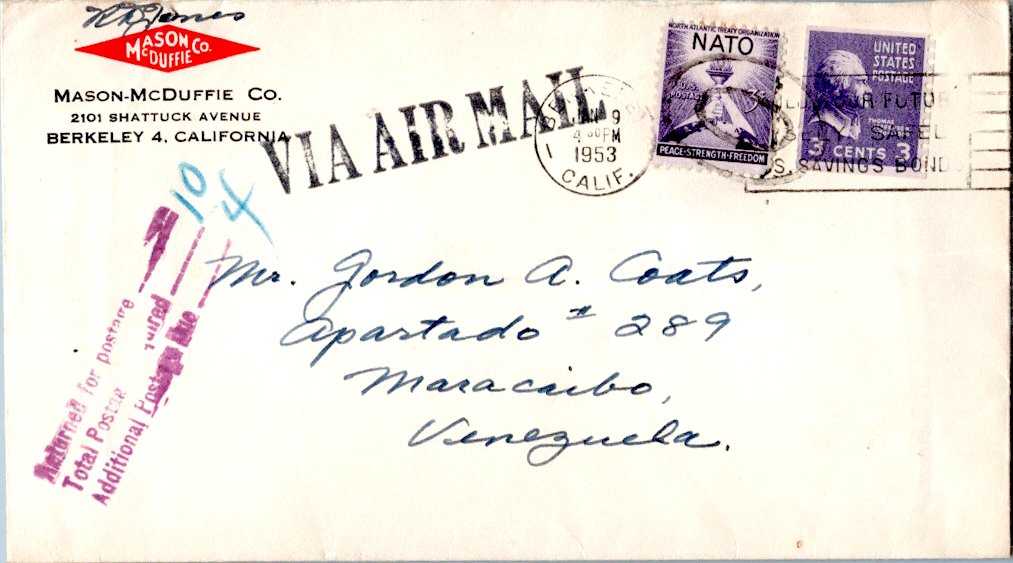 R D Jones
MASON
McDUFFIE Co.
MASON-McDUFFIE CO.
2101 SHATTUCK AVENUE
BERKELEY 4, CALIFORNIA
VIA AIR MAIL
9
4 30 PM
1953
CALIF.
NORTH ATLANTIC TREATY ORGANIZATION
NATO
POSTAGE
3¢
PEACE·STRENGTH·FREEDOM
UNITED
STATES
POSTAGE
THOMAS
JEFFERSON
3 CENTS 3
FUTUR
SAFEL
U.S. SAVINGS BONDS
10
4
Returned for postage
Total Postage required
Additional Postage Due
Mr. Gordon A. Coats,
Apartado # 289
Maracaibo,
Venezuela.